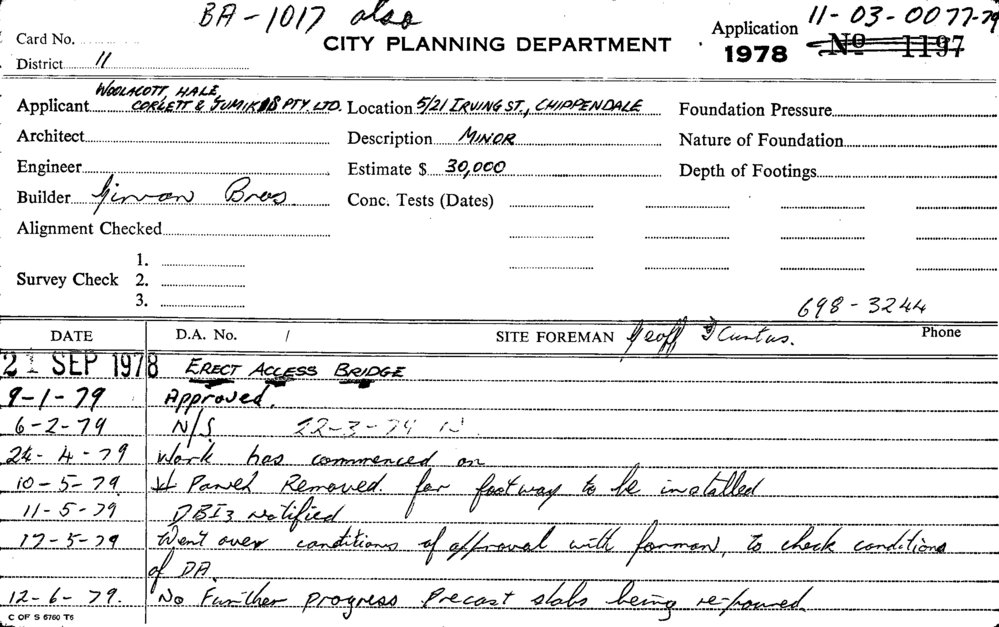 BA-1017 also
11-03-0077-79
Card No.
CITY PLANNING DEPARTMENT
Application
1978
No 1197
District 11
Applicant WOOLACOTT, HALE, CORLETT & JUMIKIS PTY. LTD. Location 5/21 IRVING ST., CHIPPENDALE Foundation Pressure
Architect Description MINOR Nature of Foundation
Engineer Estimate $ 30,000 Depth of Footings
Builder Girvan Bros Conc. Tests (Dates)
Alignment Checked
Survey Check 1.
2.
3.
698-3244
DATE D.A. No. / SITE FOREMAN Geoff Phone
21 SEP 1978 ERECT ACCESS BRIDGE
9-1-79 Approved.
6-2-79 N/S 22-3-79
24-4-79 Work has commenced on
10-5-79 Panel Removed. for footway to be installed
11-5-79 DBI3 notified
17-5-79 Went over conditions of approval with forman, to check conditions
of DA.
12-6-79. No Further progress Precast slabs being re-poured.
C OF S 6760 T6